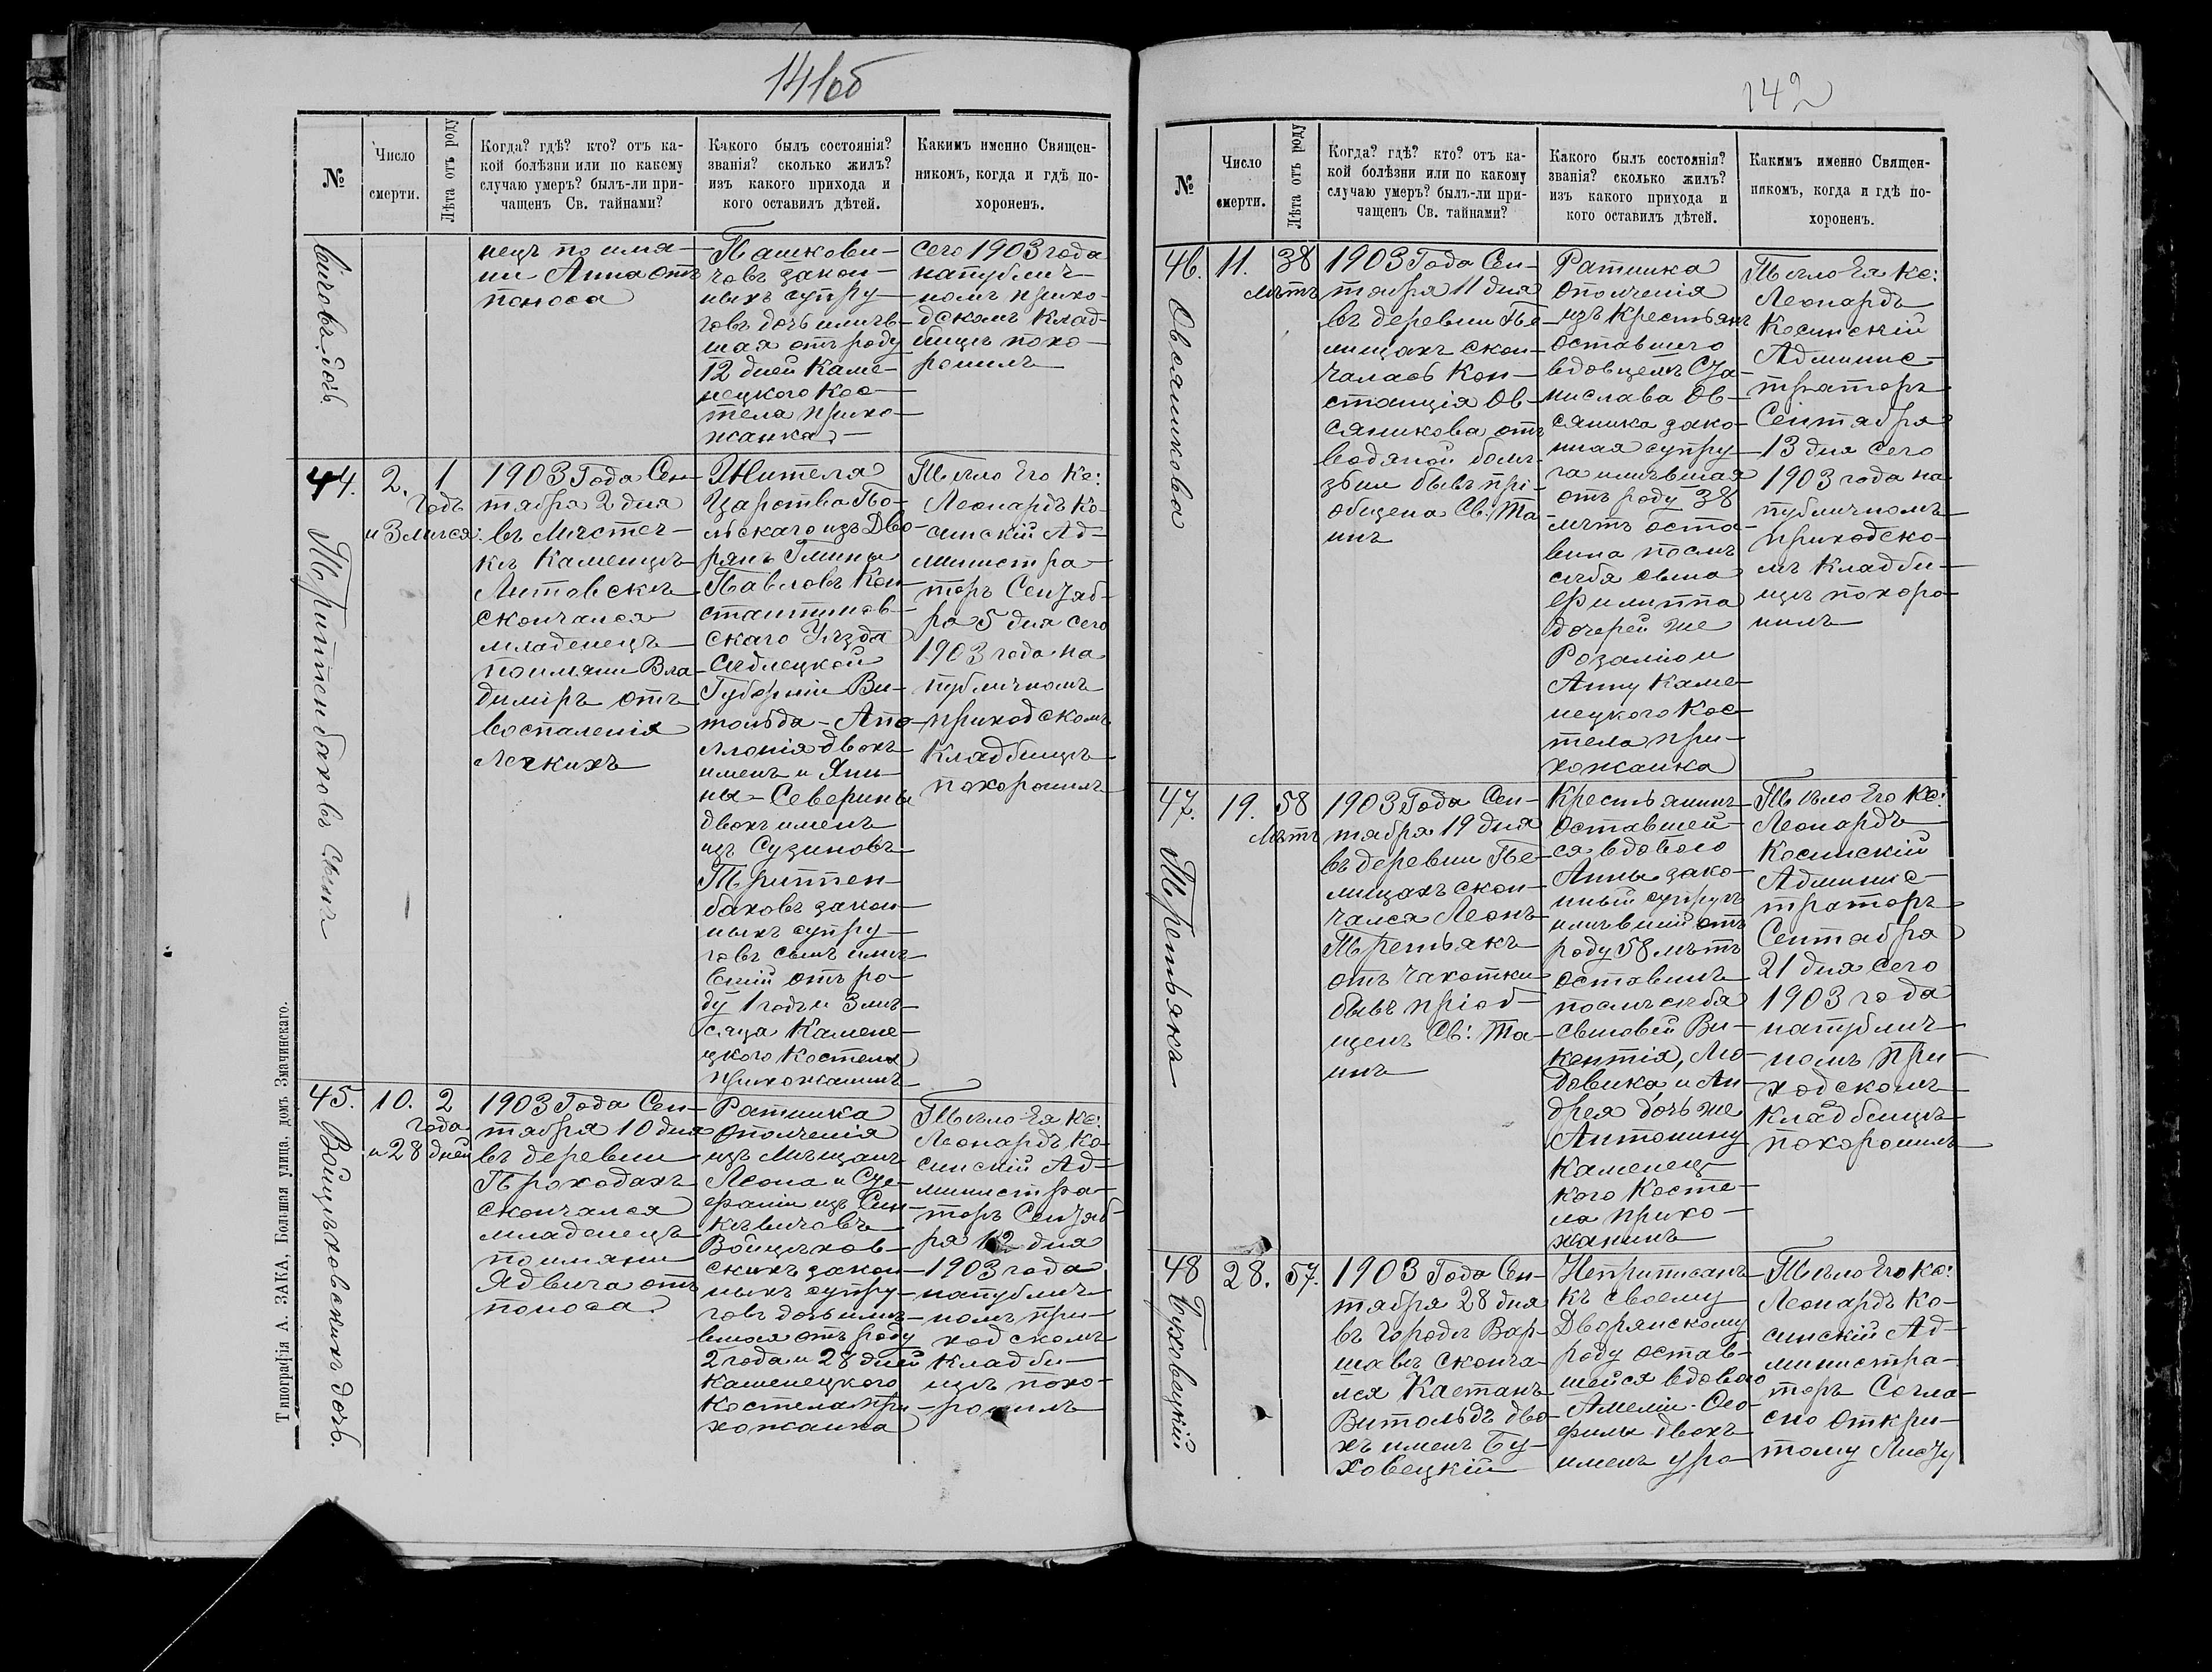 141об
№
Число
смерти.
Лѣта отъ роду
Когда? гдѣ? кто? отъ ка-
кой болѣзни или по какому
случаю умеръ? былъ-ли при-
чащенъ Св. тайнами?
Какого былъ состоянія?
званія? сколько жилъ?
изъ какого прихода и
кого оставилъ дѣтей.
Какимъ именно Священ-
никомъ, когда и гдѣ по-
хороненъ.
вичовъ дочь
нецъ по имя-
ни Анна отъ
поноса
Пашкови-
човъ закон-
ныхъ супру-
говъ дочь имѣв-
шая отъ роду
12 дней Каме-
нецкого Кос-
тела прихо-
жанка
сего 1903 года
на публич-
номъ прихо-
дскомъ клад-
бищѣ похо-
ронилъ
44.
Триппенбаховъ сынъ
2.
1
годъ
и 3 мѣсяс:
1903 Года Сен-
тября 2 дня
въ мѣстеч-
кѣ Каменцѣ
Литовскѣ
скончался
младенецъ
по имяни Вла-
димiръ отъ
воспаленія
легкихъ
Жителя
Царства По-
льскаго изъ Дво-
рянъ Гмины
Павловъ Кон-
стантинов-
скаго Уѣзда
Сѣдлецкой
Губерніи Ви-
тольда-Апо-
лонія двохъ
именъ и Яни-
ны-Северины
двохъ именъ
изъ Сузиновъ
Триппен-
баховъ закон-
ныхъ супру-
говъ сынъ имѣ-
вшій отъ ро-
ду 1 годъ и 3 мѣ-
сяца Камене-
цкого Костела
прихожанинъ
Тѣло Его Кс:
Леонардъ Ко-
синскій Ад-
министра-
торъ Сентяб-
ря 5 дня сего
1903 года на
публичномъ
приходскомъ
кладбищѣ
похоронилъ
45.
Войцѣховскихъ дочь.
10.
2
года
и 28 дней
1903 Года Сен-
тября 10 дня
въ деревни
Проходахъ
скончался
младенецъ
по имяни
Ядвига отъ
поноса
Ратника
ополченія
изъ мѣщанъ
Леона и Сте-
фаніи изъ Син-
кѣвичовъ
Войцѣхов-
скихъ закон-
ныхъ супру-
говъ дочь имѣ-
вшая отъ роду
2 года и 28 дней
Каменецкого
Костела при-
хожанка
Тѣло Ея Кс:
Леонардъ Ко-
синскій Ад-
министра-
торъ Сентяб-
ря 12 дня
1903 года
на публич-
номъ при-
ходскомъ
кладби-
щѣ похо-
ронилъ
Типографія А. ЗАКА, Большая улица, домъ Змачинскаго.
142
№
Число
смерти.
Лѣта отъ роду
Когда? гдѣ? кто? отъ ка-
кой болѣзни или по какому
случаю умеръ? былъ-ли при-
чащенъ Св. тайнами?
Какого былъ состоянія?
званія? сколько жилъ?
изъ какого прихода и
кого оставилъ дѣтей.
Какимъ именно Священ-
никомъ, когда и гдѣ по-
хороненъ.
46.
Овсяникова
11.
38
лѣтъ
1903 Года Сен-
тября 11 дня
въ деревни Пе-
лищахъ скон-
чалась Кон-
станція Ов-
сяникова отъ
водяной болѣ-
зни бывъ прі-
общена Св: Та-
инъ
Ратника
ополченія
изъ крестьянъ
оставшего
вдовцемъ Ста-
нислава Ов-
сяника зако-
нная супру-
га имѣвшая
отъ роду 38
лѣтъ оста-
вила послѣ
себя сына
Филиппа
дочерей же
Розалію и
Анну Каме-
нецкого Кос-
тела при-
хожанка
Тѣло Ея Кс:
Леонардъ
Косинскій
Админис-
траторъ
Сентября
13 дня сего
1903 года на
публичномъ
приходско-
мъ кладби-
щѣ похоро-
нилъ
47.
Третьякъ
19.
58
лѣтъ
1903 Года Сен-
тября 19 дня
въ деревни Пе-
лищахъ скон-
чался Леонъ
Третьякъ
отъ чахотки
бывъ пріоб-
щенъ Св: Та-
инъ
Крестьянинъ
оставшей-
ся вдовою
Анны зако-
нный супругъ
имѣвшій отъ
роду 58 лѣтъ
оставилъ
послѣ себя
сыновей Ви-
кентія, Лю-
довика и Ан-
дрея дочь же
Антонину
Каменец-
кого Косте-
ла прихо-
жанинъ
Тѣло Его Кс:
Леонардъ
Косинскій
Админис-
траторъ
Сентября
21 дня сего
1903 года
на публич-
номъ при-
ходскомъ
кладбищѣ
похоронилъ
48
Буховецкій
28.
57.
1903 Года Сен-
тября 28 дня
въ городѣ Вар-
шавѣ сконча-
лся Каетанъ
Витольдъ дво-
хъ именъ Бу-
ховецкій
Неприписанъ
къ своему
Дворянскому
роду остав-
шейся вдовою
Амеліи-Оео-
филы двохъ
именъ уро
Тѣло Его Кс:
Леонардъ Ко-
синскій Ад-
министра-
торъ Согла-
сно откри-
тому Листу